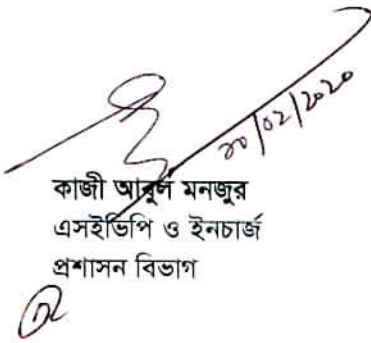 ২০/০২/২০২০
কাজী আবুল মনজুর
এসইভিপি ও ইনচার্জ
প্রশাসন বিভাগ